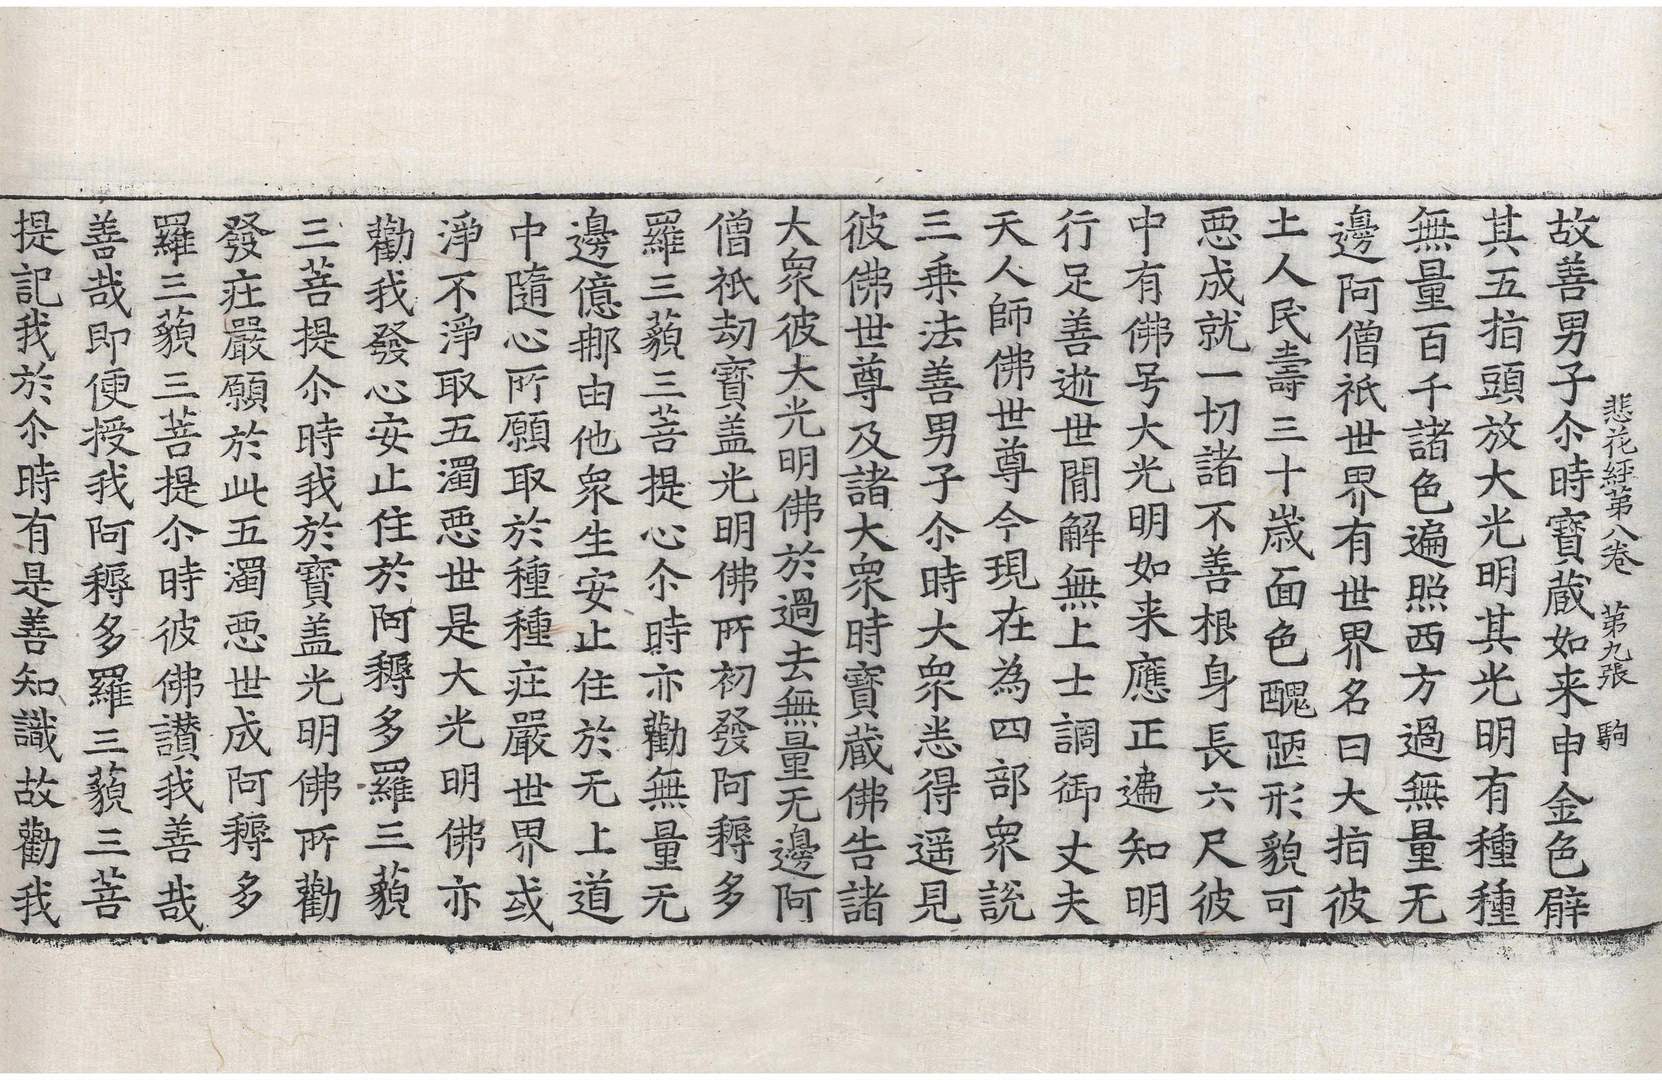 悲花経第八卷　第九張　駒
故善男子尒時寶蔵如来申金色臂
其五指頭放大光明其光明有種種
無量百千諸色遍照西方過無量无
邊阿僧祇世界有世界名曰大指彼
土人民壽三十歲面色醜陋形貌可
惡成就一切諸不善根身長六尺彼
中有佛号大光明如来應正遍知明
行足善逝世間解無上士調御丈夫
天人師佛世尊今現在為四部衆說
三乗法善男子尒時大衆悉得遥見
彼佛世尊及諸大衆時寶蔵佛告諸
大衆彼大光明佛於過去無量无邊阿
僧祇劫寶盖光明佛所初發阿耨多
羅三藐三菩提心尒時亦勸無量无
邊億那由他衆生安止住於无上道
中隨心所願取於種種莊嚴世界或
淨不淨取五濁惡世是大光明佛亦
勸我發心安止住於阿耨多羅三藐
三菩提尒時我於寶盖光明佛所勸
發莊嚴願於此五濁惡世成阿耨多
羅三藐三菩提尒時彼佛讃我善哉
善哉即便授我阿耨多羅三藐三菩
提記我於尒時有是善知識故勸我